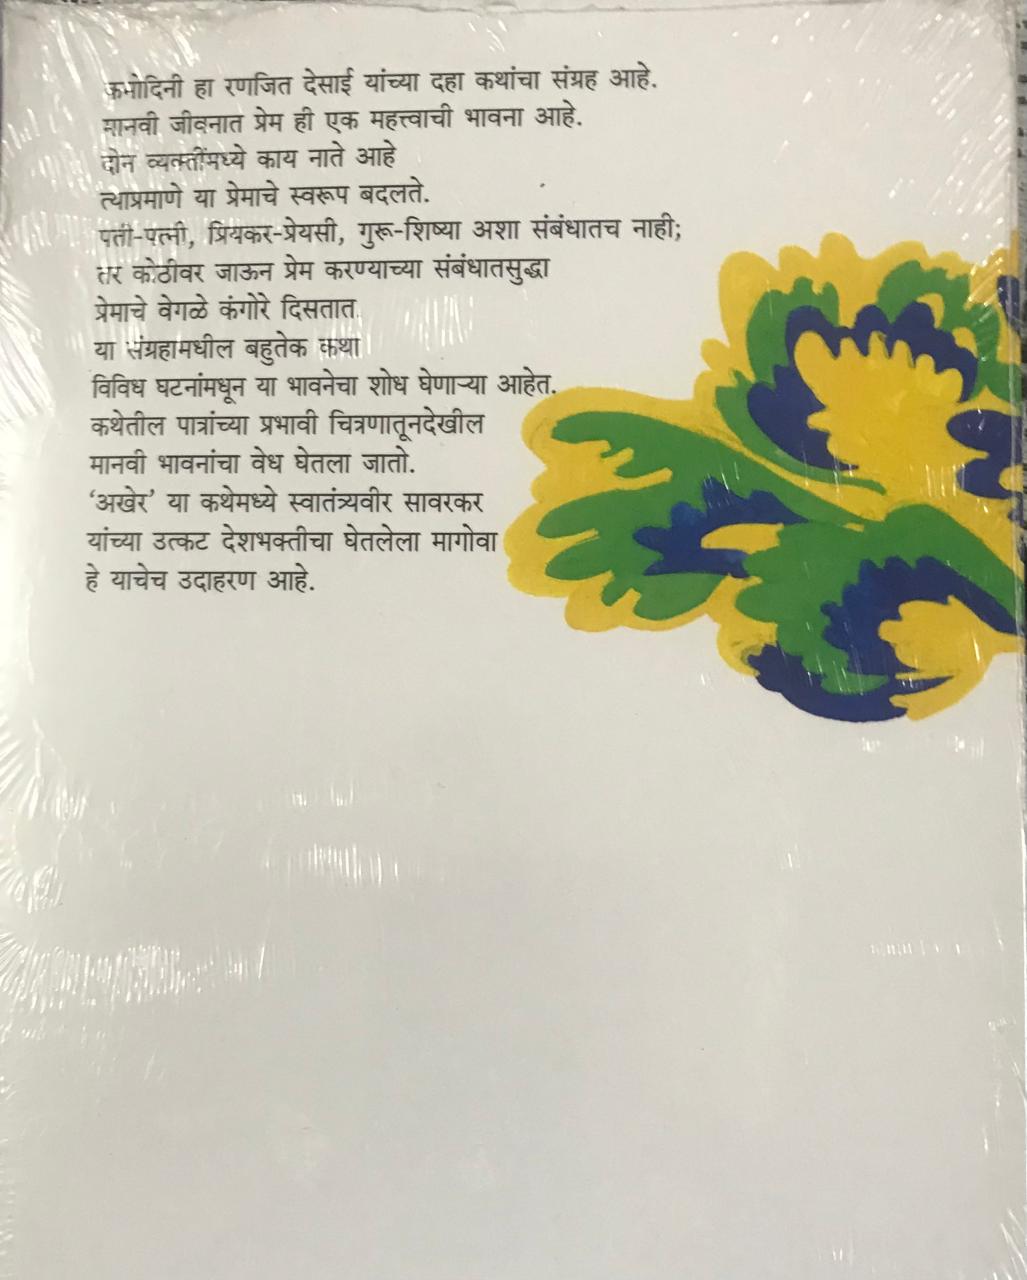 कमोदिनी हा रणजित देसाई यांच्या दहा कथांचा संग्रह आहे.
मानवी जीवनात प्रेम ही एक महत्त्वाची भावना आहे.
दोन व्यक्तींमध्ये काय नाते आहे
त्याप्रमाणे या प्रेमाचे स्वरूप बदलते.
पती-पत्नी, प्रियकर-प्रेयसी, गुरू-शिष्या अशा संबंधातच नाही;
तर कोठीवर जाऊन प्रेम करण्याच्या संबंधातसुद्धा
प्रेमाचे वेगळे कंगोरे दिसतात.
या संग्रहामधील बहुतेक कथा
विविध घटनांमधून या भावनेचा शोध घेणाऱ्या आहेत.
कथेतील पात्रांच्या प्रभावी चित्रणातूनदेखील
मानवी भावनांचा वेध घेतला जातो.
‘अखेर’ या कथेमध्ये स्वातंत्र्यवीर सावरकर
यांच्या उत्कट देशभक्तीचा घेतलेला मागोवा
हे याचेच उदाहरण आहे.